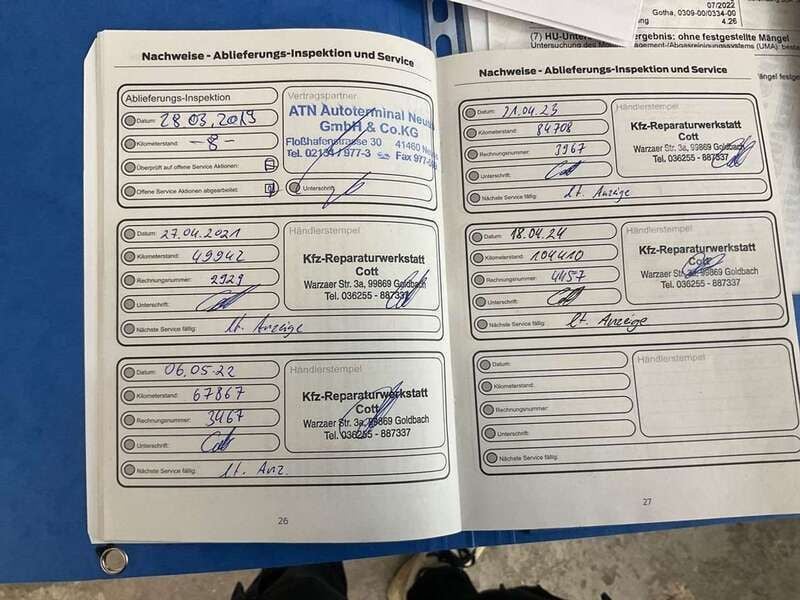 07/2022
Gotha, 0309-00/0334-00
4.26
(7) HU-Unter ergebnis: ohne festgestellte Mängel
Nachweise - Ablieferungs-Inspektion und Service
Ablieferungs-Inspektion
Datum: 28.03.2019
Kilometerstand: -8-
Überprüft auf offene Service Aktionen:
Offene Service Aktionen abgearbeitet:
Vertragspartner
ATN Autoterminal Neuss
GmbH & Co.KG
Floßhafenstrasse 30 41460 Neuss
Tel. 02134/977-3 Fax 977-
Unterschrift:
Datum: 27.04.2021
Kilometerstand: 49942
Rechnungsnummer: 2929
Unterschrift: Cott
Nächste Service fällig: lt. Anzeige
Händlerstempel
Kfz-Reparaturwerkstatt
Cott
Warzaer Str. 3a, 99869 Goldbach
Tel. 036255 - 887337
Datum: 06.05-22
Kilometerstand: 67867
Rechnungsnummer: 3467
Unterschrift: Cott
Nächste Service fällig: lt. Anz.
Händlerstempel
Kfz-Reparaturwerkstatt
Cott
Warzaer Str. 3a, 99869 Goldbach
Tel. 036255 - 887337
26
Nachweise - Ablieferungs-Inspektion und Service
Datum: 21.04.23
Kilometerstand: 84708
Rechnungsnummer: 3967
Unterschrift: Cott
Nächste Service fällig: lt. Anzeige
Händlerstempel
Kfz-Reparaturwerkstatt
Cott
Warzaer Str. 3a, 99869 Goldbach
Tel. 036255 - 887337
Datum: 18.04.24
Kilometerstand: 104410
Rechnungsnummer: 4457
Unterschrift: Cott
Nächste Service fällig: lt. Anzeige
Händlerstempel
Kfz-Reparaturwerkstatt
Cott
Warzaer Str. 3a, 99869 Goldbach
Tel. 036255 - 887337
Datum:
Kilometerstand:
Rechnungsnummer:
Unterschrift:
Nächste Service fällig:
Händlerstempel
27